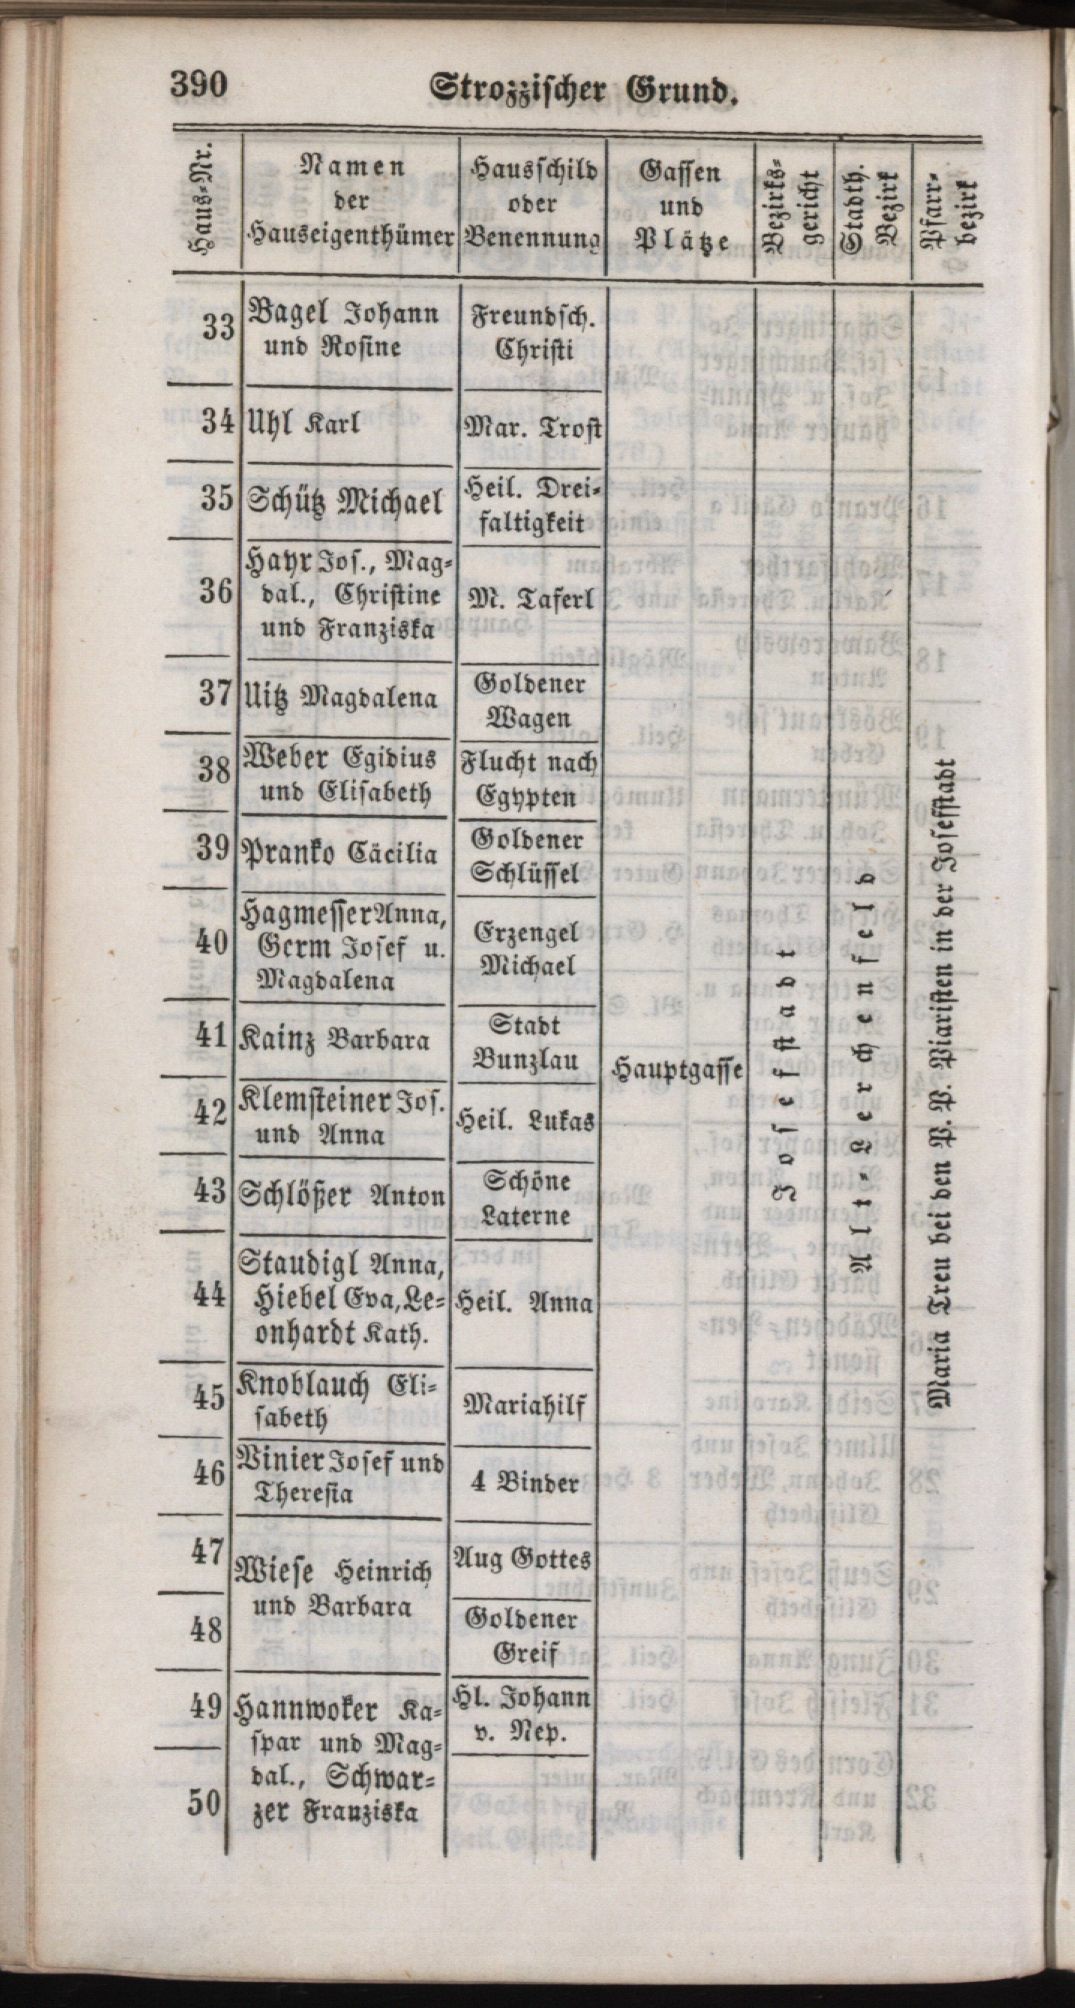 390
Strozzischer Grund.
Haus-Nr.
Namen
der
Hauseigenthümer
Hausschild
oder
Benennung
Gassen
und
Plätze
Bezirks-
gericht
Stadth.
Bezirk
Pfarr-
bezirk
33
Bagel Johann
und Rosine
Freundsch.
Christi
34
Uhl Karl
Mar. Trost
35
Schütz Michael
Heil. Drei-
faltigkeit
36
Hayr Jos., Mag-
dal., Christine
und Franziska
M. Taferl
37
Uitz Magdalena
Goldener
Wagen
38
Weber Egidius
und Elisabeth
Flucht nach
Egypten
39
Pranko Cäcilia
Goldener
Schlüssel
40
Hagmesser Anna,
Germ Josef u.
Magdalena
Erzengel
Michael
41
Kainz Barbara
Stadt
Bunzlau
42
Klemsteiner Jos.
und Anna
Heil. Lukas
43
Schlößer Anton
Schöne
Laterne
44
Staudigl Anna,
Hiebel Eva, Le-
onhardt Kath.
Heil. Anna
45
Knoblauch Eli-
sabeth
Mariahilf
46
Vinier Josef und
Theresia
4 Binder
47
Wiese Heinrich
und Barbara
Aug Gottes
48
Goldener
Greif
49
Hannwoker Ka-
spar und Mag-
dal., Schwar-
zer Franziska
Hl. Johann
v. Nep.
50
Hauptgasse
Josefstadt
Alt-Lerchenfeld
Maria Treu bei den P. P. Piaristen in der Josefstadt